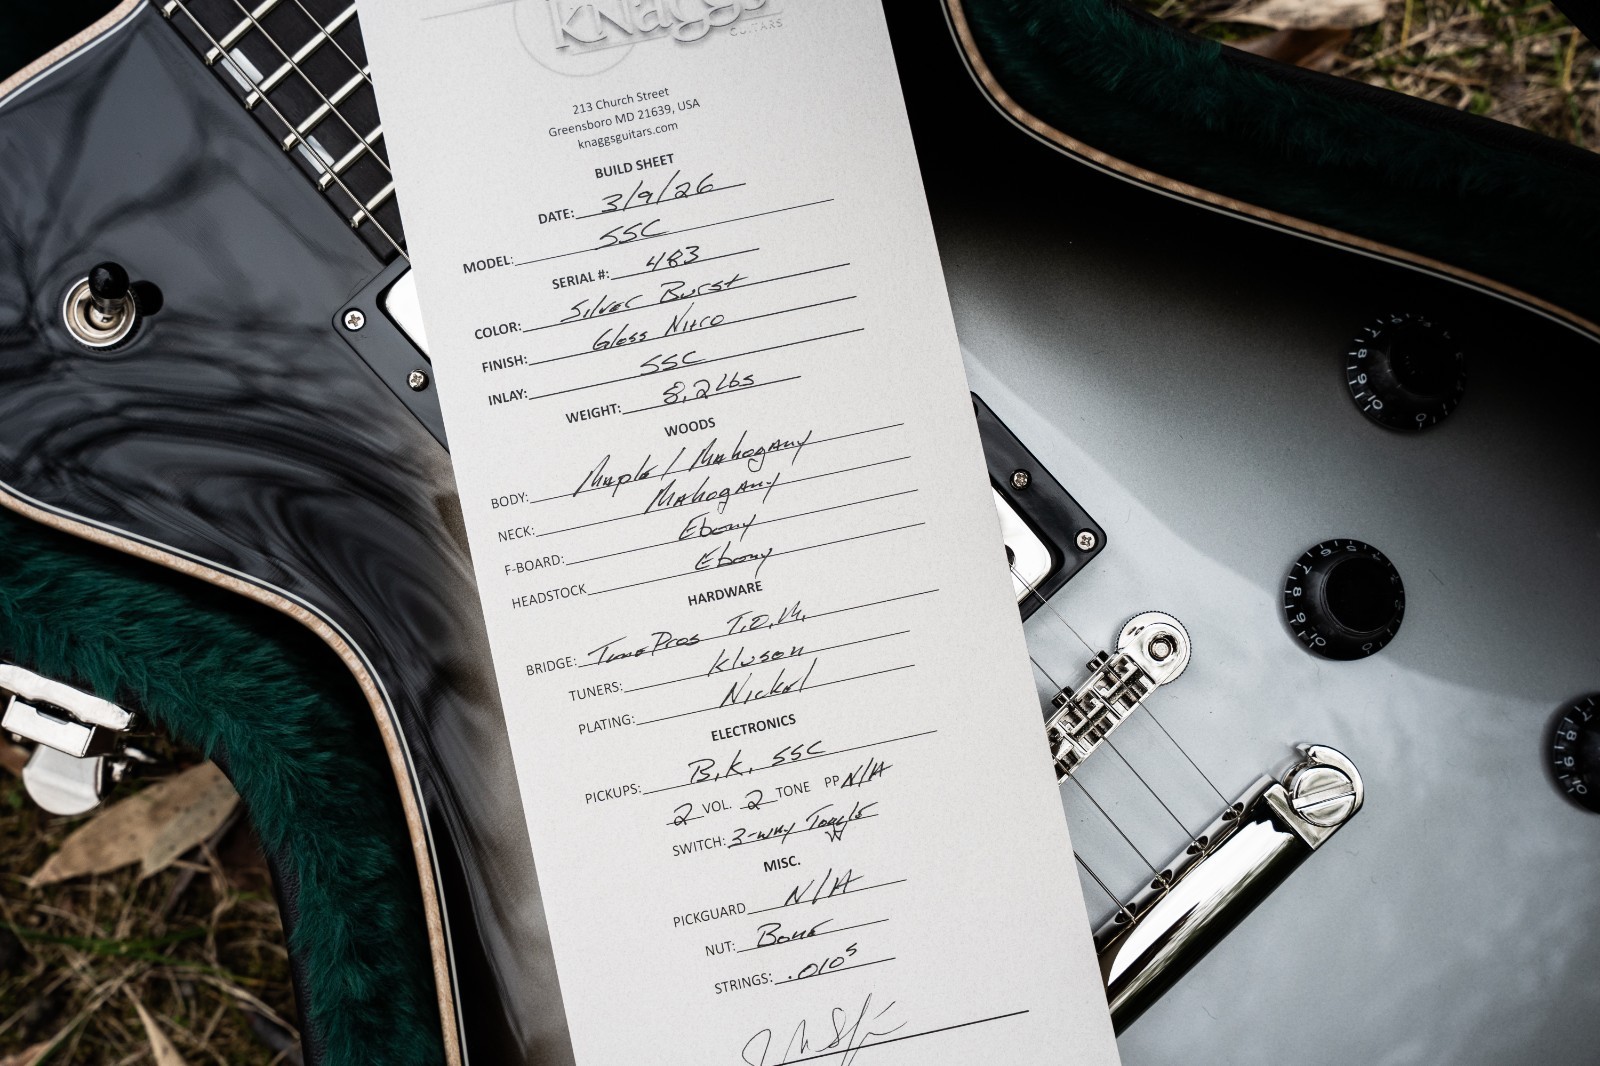 Knaggs
GUITARS
213 Church Street
Greensboro MD 21639, USA
knaggsguitars.com
BUILD SHEET
DATE: 3/9/26
MODEL: SSC
SERIAL #: 483
COLOR: Silver Burst
FINISH: Gloss Nitro
INLAY: SSC
WEIGHT: 8.2 lbs
WOODS
BODY: Maple / Mahogany
NECK: Mahogany
F-BOARD: Ebony
HEADSTOCK Ebony
HARDWARE
BRIDGE: TonePros T.O.M.
TUNERS: Kluson
PLATING: Nickel
ELECTRONICS
PICKUPS: B.K. SSC
2 VOL. 2 TONE PP N/A
SWITCH: 3-way Toggle
MISC.
PICKGUARD N/A
NUT: Bone
STRINGS: .010s